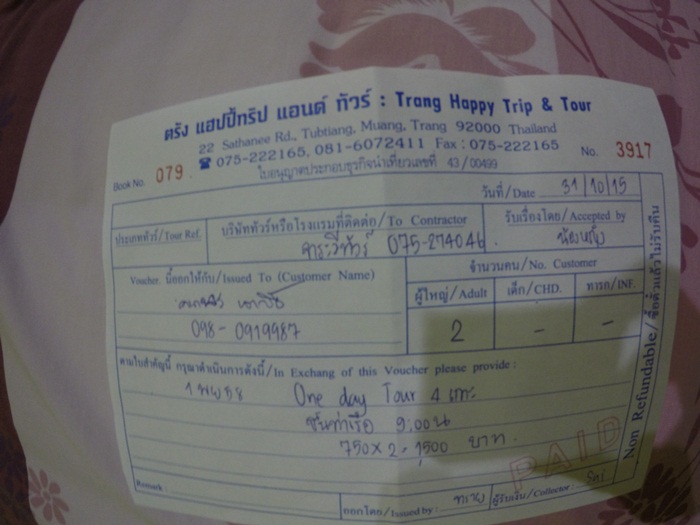 ตรัง แฮปปี้ทริป แอนด์ ทัวร์ : Trang Happy Trip & Tour
22 Sathanee Rd., Tubtiang, Muang, Trang 92000 Thailand
☎ 075-222165, 081-6072411 Fax : 075-222165
ใบอนุญาตประกอบธุรกิจนำเที่ยวเลขที่ 43/00499
Book No. 079
No. 3917
วันที่/Date 31/10/15
ประเภททัวร์/Tour Ref.
บริษัททัวร์หรือโรงแรมที่ติดต่อ/To Contractor
075-274046
รับเรื่องโดย/Accepted by
Voucher นี้ออกให้กับ/Issued To (Customer Name)
098-0919987
จำนวนคน/No. Customer
ผู้ใหญ่/Adult เด็ก/CHD. ทารก/INF.
2 - -
ตามใบสำคัญนี้ กรุณาดำเนินการดังนี้/In Exchang of this Voucher please provide :
1 พย 58 One day Tour 4 เกาะ
ขึ้นท่าเรือ 9.00 น
750 x 2 = 1500 บาท
PAID
Remark :
ออกโดย/Issued by :
ผู้รับเงิน/Collector :
Non Refundable/ซื้อตั๋วแล้วไม่รับคืน